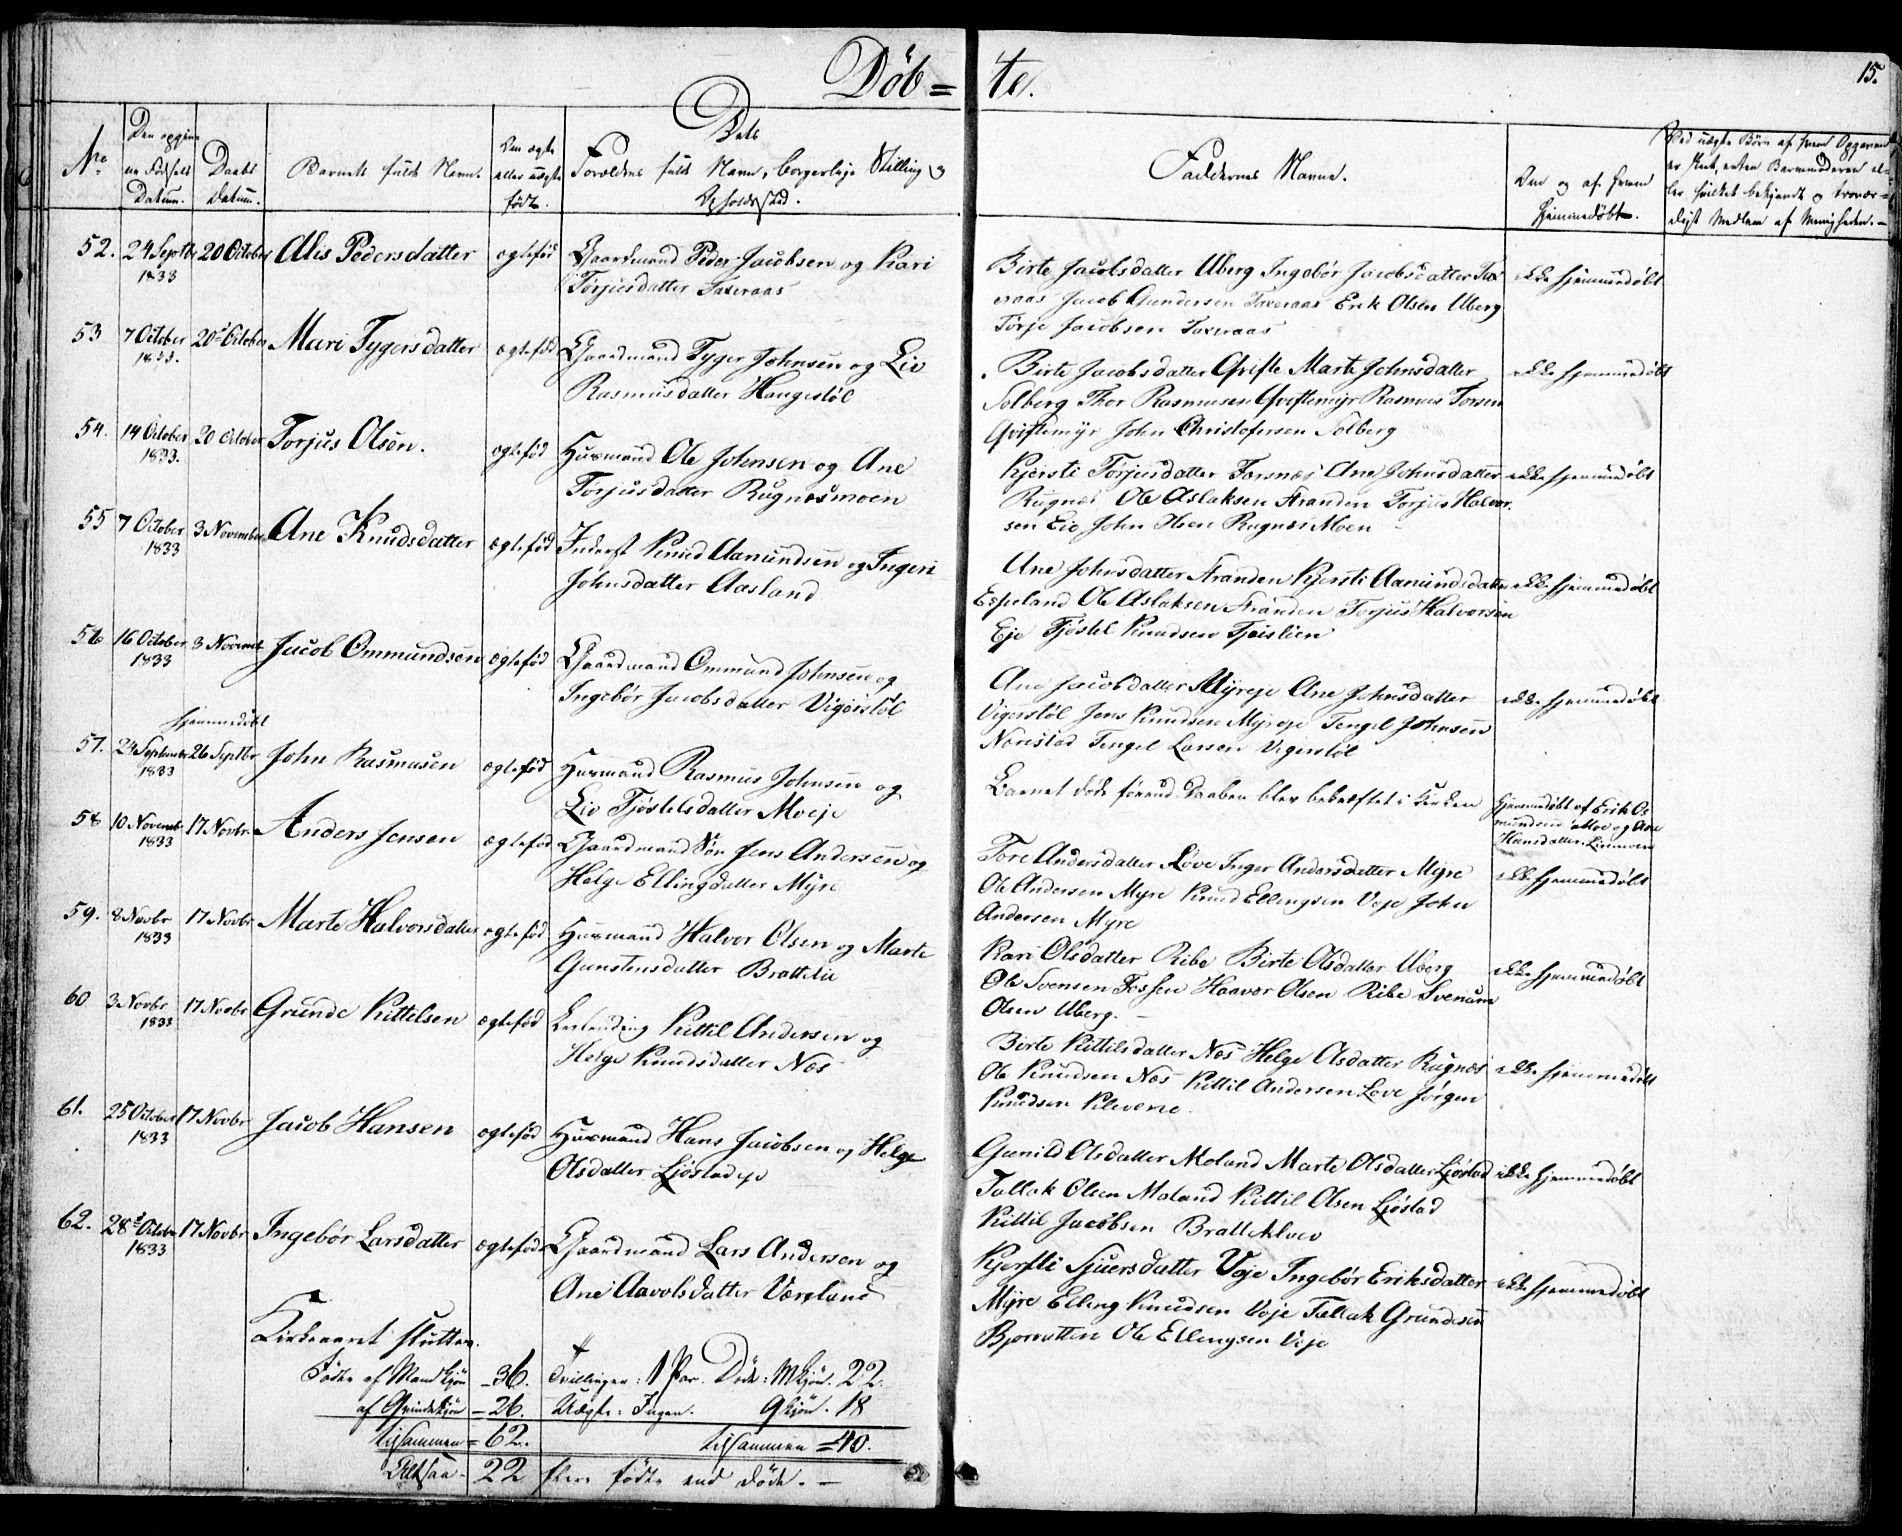 Döb= te.
15.
No.
Den opgivne Födsels Datum.
Daabs Datum.
Barnets fulde Navn.
Om ægte eller uægte födt.
Dets Forældres fulde Navn, borgerlige Stilling og Opholdssted.
Faddernes Navne.
Om og af hvem hjemmedöbt.
Ved uægte Börn af hvem Opgaven er skeet, enten Barnemoderen eller hvilket bekjendt og troværdigt Medlem af Menigheden.
52. 24 Septbr 1833 20 October Alis Pedersdatter ægtefød Gaardmand Peder Jacobsen og Kari
Torjusdatter Taxeraas
Birte Jacobsdatter Uberg Ingebör Jacobsdatter Tax
eraas Jacob Gundersen Taxeraas Erik Olsen Uberg
Törje Jacobsen Taxeraas
ikke hjemmedöbt
53 7 October 1833. 20de October Mari Tygersdatter ægtefød Gaardmand Tyger Johnsen og Liv
Rasmusdatter Haugestöl
Birte Jacobsdatter Qvifte Marte Johnsdatter
Solberg Thor Rasmusen Qviftemÿr Rasmus Torsen
Qviftemÿr John Christofersen Solberg
ikke hjemmedöbt
54. 14 October 1833. 20 October Torjus Olsen. ægtefød Husmand Ole Johnsen og Ane
Torjusdatter Rugnæsmoen
Kjersti Torjusdatter Forsnæs Ane Johnsdatter
Rugnæs Ole Aslaksen Stranden Torjus Halvor
sen Eie John Olsen Rugnæs Moen
ikke hjemmedöbt
55 7 October 1833 3 November Ane Knudsdatter ægtefød Inderst Knud Aamundsen og Ingeri
Johnsdatter Aasland
Ane Johnsdatter Stranden Kjersti Aamundsdatter
Espeland Ole Aslaksen Stranden Torjus Halvorsen
Eje Tjöstel Knudsen Tjeislien
ikke hjemmedöbt
56 16 October 1833 3 Novemb Jacob Ommundsen ægtefød Gaardmand Ommund Johnsen og
Ingebör Jacobsdatter Vigerstöl
Ane Jacobsdatter Myreje Ane Johnsdatter
Vigerstöl Jens Knudsen Myreje Tengel Johnsen
Narestad Tengel Larsen Vigerstöl
ikke hjemmedöbt
hjemmedöbt
57. 24 September 1833 26 Septbr John Rasmusen ægtefød Husmand Rasmus Johnsen og
Liv Tjöstelsdatter Moeje
Barnet döde förend Daaben blev bekræftet i Kirken
Hjemmedöbt af Erik Os
mundsen Moe og Ane
Hansdatter Linmoen
58 10 Novemb 1833 17 Novbr. Anders Jensen ægtefød Gaardmand Sön Jens Andersen og
Helge Ellingsdatter Myre
Tore Andersdatter Löve Inger Andersdatter Myre
Ole Andersen Myre Knud Ellingsen Veje John
Andersen Myre
ikke hjemmedöbt
59. 8 Novbr 1833 17 Novbr Marte Halvorsdatter ægtefød Husmand Halvor Olsen og Marte
Gunstensdatter Brattelie
Kari Olsdatter Ribe Birte Olsdatter Uberg
Ole Svensen Fossen Haavor Olsen Ribe Svenum
Olsen Uberg.
ikke hjemmedöbt
60 3 Novbr 1833 17 Novbr Grunde Kittelsen ægtefød Leilending Kittil Andersen og
Helge Knudsdatter Næs
Birte Kittilsdatter Næs Helge Olsdatter Rugnæs
Ole Knudsen Næs Kittil Andersen Löve Jörgen
Knudsen Klevene.
ikke hjemmedöbt
61. 25 October 1833 17 Novbr Jacob Hansen ægtefød Husmand Hans Jacobsen og Helge
Olsdatter Ljöstadeje
Gunild Olsdatter Moland Marte Olsdatter Ljöstad
Tallak Olsen Moland Kittil Olsen Ljöstad
Kittil Jacobsen Brattekleiv
ikke hjemmedöbt
62. 28de October 1833 17 Novbr Ingebör Larsdatter ægtefød Gaardmand Lars Andersen og
Ane Aavolsdatter Værgland
Kjersti Sjuersdatter Veje Ingebör Eriksdatter
Myre Elling Knudsen Veje Tallak Grundesen
Bjorvatten Ole Ellingsen Veje
ikke hjemmedöbt
Kirkeaaret slutter.
Födte af Mandkjön - 36. Tvillinger: 1 Par. Döde: Mkjön. 22.
af Qvindekjön - 26. Uægte: Ingen. Qkjön. 18
tilsammen = 62. tilsammen = 40.
Altsaa - 22 flere födte end döde. -